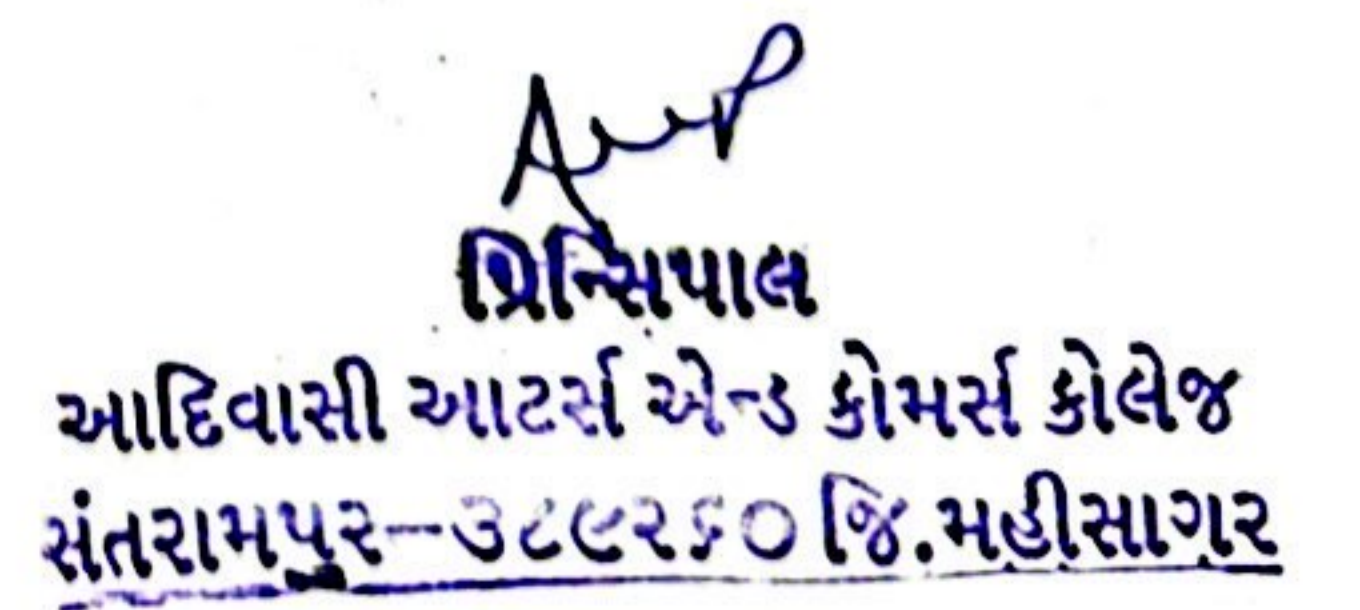 પ્રિન્સિપાલ
આદિવાસી આટર્સ એન્ડ કોમર્સ કોલેજ
સંતરામપુર-૩૮૯૨૬૦ જિ.મહીસાગર